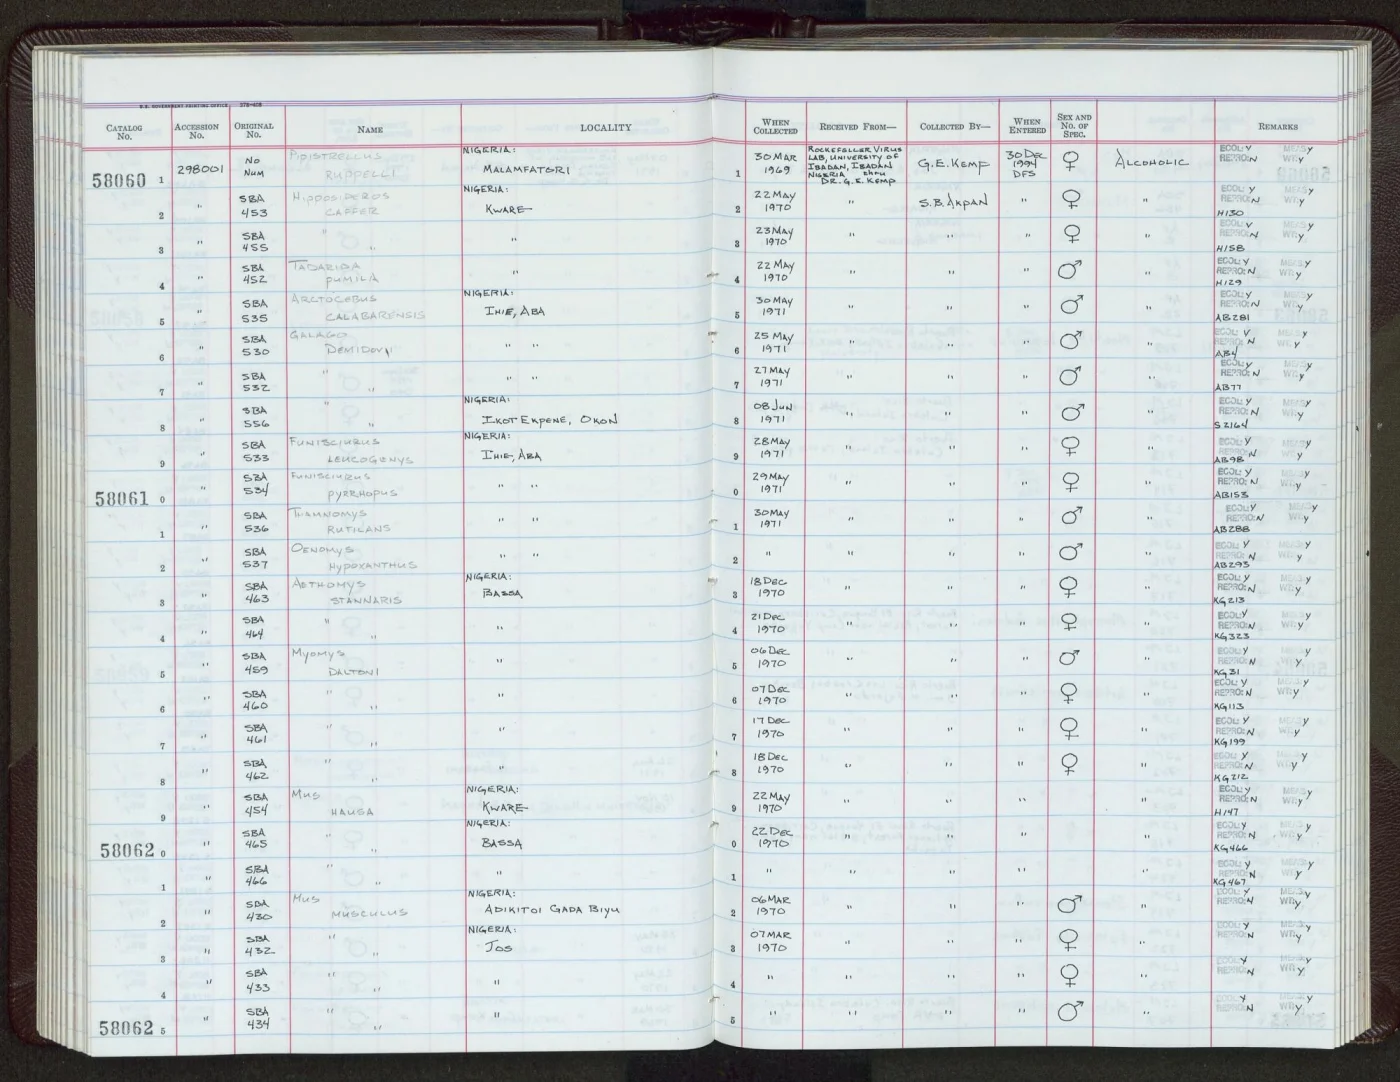 U.S. GOVERNMENT PRINTING OFFICE 378-408
CATALOG No. ACCESSION No. ORIGINAL No. NAME LOCALITY WHEN COLLECTED RECEIVED FROM— COLLECTED BY— WHEN ENTERED SEX AND No. OF SPEC. REMARKS
58060 1 298001 No Num PIPISTRELLUS RUPPELLI NIGERIA: MALAMFATORI 1 30 MAR 1969 ROCKEFELLER VIRUS LAB, UNIVERSITY OF IBADAN, IBADAN NIGERIA thru DR. G.E. KEMP G.E. KEMP 30 DEC 1994 DFS ♀ ALCOHOLIC ECOL: Y MEAS: Y REPRO: N WT: Y
2 " SBA 453 HIPPOSIDEROS CAFFER NIGERIA: KWARE 2 22 MAY 1970 " S.B. AKPAN " ♀ " ECOL: Y MEAS: Y REPRO: N WT: Y H130
3 " SBA 455 " " " 3 23 MAY 1970 " " " ♀ " ECOL: Y MEAS: Y REPRO: N WT: Y H158
4 " SBA 452 TADARIDA PUMILA " 4 22 MAY 1970 " " " ♂ " ECOL: Y MEAS: Y REPRO: N WT: Y H129
5 " SBA 535 ARCTOCEBUS CALABARENSIS NIGERIA: IHIE, ABA 5 30 MAY 1971 " " " ♂ " ECOL: Y MEAS: Y REPRO: N WT: Y AB281
6 " SBA 530 GALAGO DEMIDOVI " " 6 25 MAY 1971 " " " ♂ " ECOL: Y MEAS: Y REPRO: N WT: Y AB4
7 " SBA 532 " " " " 7 27 MAY 1971 " " " ♂ " ECOL: Y MEAS: Y REPRO: N WT: Y AB77
8 " SBA 556 " " NIGERIA: IKOT EKPENE, OKON 8 08 JUN 1971 " " " ♂ " ECOL: Y MEAS: Y REPRO: N WT: Y S2164
9 " SBA 533 FUNISCIURUS LEUCOGENYS NIGERIA: IHIE, ABA 9 28 MAY 1971 " " " ♀ " ECOL: Y MEAS: Y REPRO: N WT: Y AB98
58061 0 " SBA 534 FUNISCIURUS PYRRHOPUS " " 0 29 MAY 1971 " " " ♀ " ECOL: Y MEAS: Y REPRO: N WT: Y AB153
1 " SBA 536 THAMNOMYS RUTILANS " " 1 30 MAY 1971 " " " ♂ " ECOL: Y MEAS: Y REPRO: N WT: Y AB288
2 " SBA 537 OENOMYS HYPOXANTHUS " " 2 " " " " ♂ " ECOL: Y MEAS: Y REPRO: N WT: Y AB293
3 " SBA 463 AETHOMYS STANNARIS NIGERIA: BASSA 3 18 DEC 1970 " " " ♀ " ECOL: Y MEAS: Y REPRO: N WT: Y KG213
4 " SBA 464 " " " 4 21 DEC 1970 " " " ♀ " ECOL: Y MEAS: Y REPRO: N WT: Y KG323
5 " SBA 459 MYOMYS DALTONI " 5 06 DEC 1970 " " " ♂ " ECOL: Y MEAS: Y REPRO: N WT: Y KG31
6 " SBA 460 " " " 6 07 DEC 1970 " " " ♀ " ECOL: Y MEAS: Y REPRO: N WT: Y KG113
7 " SBA 461 " " " 7 17 DEC 1970 " " " ♀ " ECOL: Y MEAS: Y REPRO: N WT: Y KG199
8 " SBA 462 " " " 8 18 DEC 1970 " " " ♀ " ECOL: Y MEAS: Y REPRO: N WT: Y KG212
9 " SBA 454 MUS HAUSA NIGERIA: KWARE 9 22 MAY 1970 " " " " ECOL: Y MEAS: Y REPRO: N WT: Y H147
58062 0 " SBA 465 " " NIGERIA: BASSA 0 22 DEC 1970 " " " " ECOL: Y MEAS: Y REPRO: N WT: Y KG466
1 " SBA 466 " " " 1 " " " " " ECOL: Y MEAS: Y REPRO: N WT: Y KG467
2 " SBA 430 MUS MUSCULUS NIGERIA: ADIKITOI GADA BIYU 2 06 MAR 1970 " " " ♂ " ECOL: Y MEAS: Y REPRO: N WT: Y
3 " SBA 432 " " NIGERIA: JOS 3 07 MAR 1970 " " " ♀ " ECOL: Y MEAS: Y REPRO: N WT: Y
4 " SBA 433 " " " 4 " " " " ♀ " ECOL: Y MEAS: Y REPRO: N WT: Y
58062 5 " SBA 434 " " " 5 " " " " ♂ " ECOL: Y MEAS: Y REPRO: N WT: Y